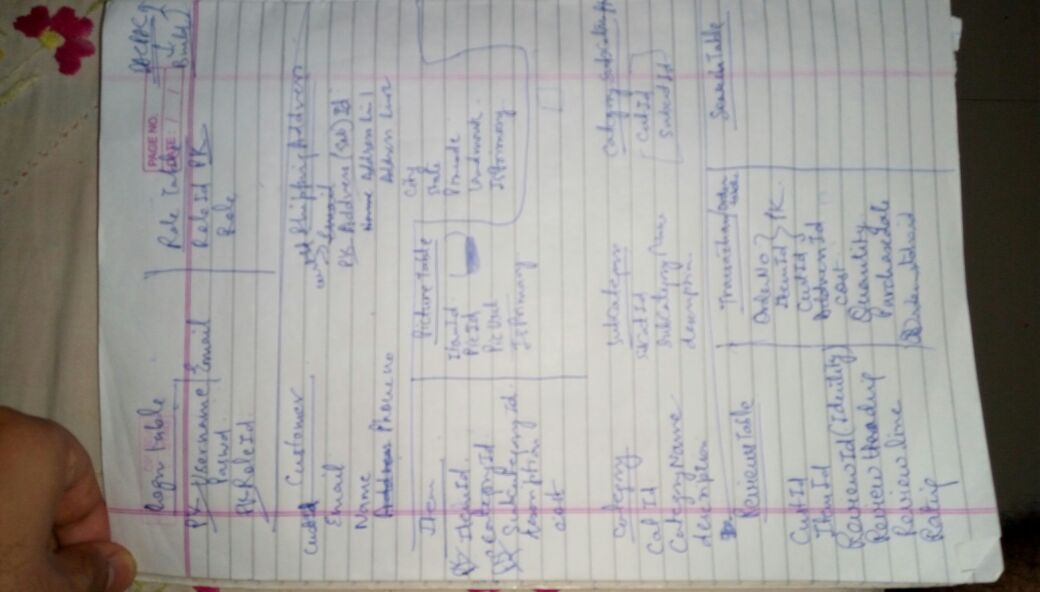 Login table
PK Username
Email
Paswd
PK RoleId
PAGE NO.
DACPAC
Build
Role Table
RoleId PK
Role
Customer
CustId
Email
Name
Address Phone no
Shipping Address
CustId
Email
PK Address (Sub) Id
Name Address Lin1
Address Line2
City
State
Pincode
Landmark
IsPrimary
Item
PK ItemId
CategoryId
SubCategory Id
description
cost
Picture Table
ItemId
PicId
PicUrl
IsPrimary
Category
Cat Id
CategoryName
description
SubCategory
SubCatId
SubCategory Name
description
Category Subcategory
CatId
SubcatId
Reviews Table
CustId
ItemId
ReviewId (Identity)
Review Heading
Review line
Rating
Transaction/Order table
OrderNo
ItemId PK
CustId
AddressId
cost
Quantity
Purchasedate
Search Table